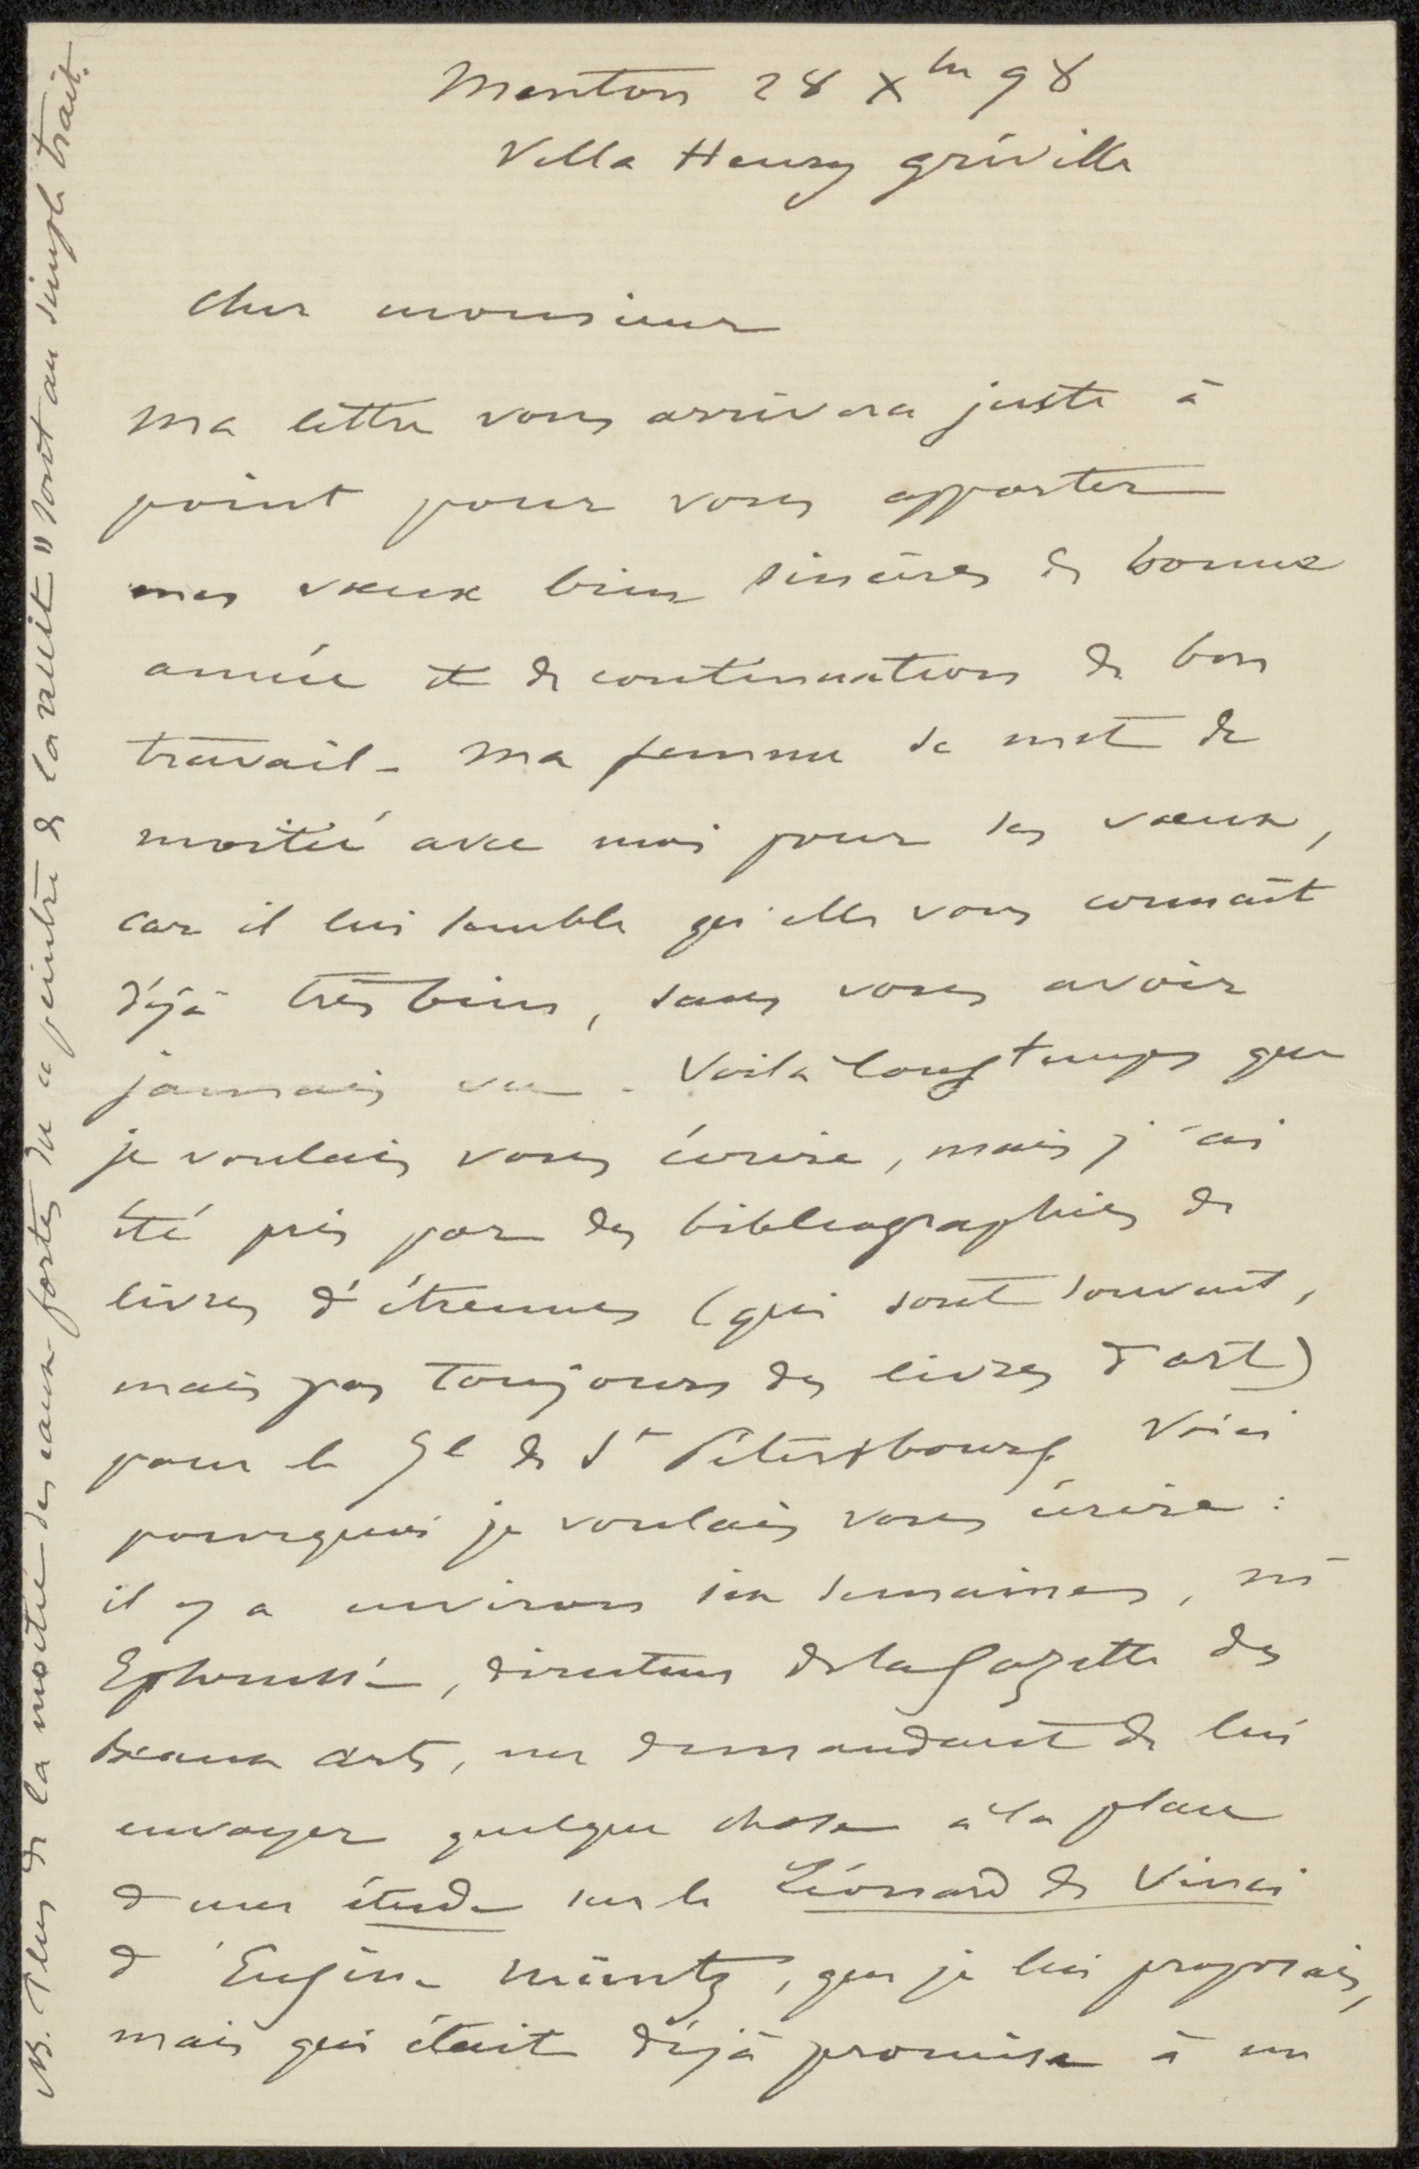 Menton 28 Xbre 98
Villa Henry Gréville
Cher monsieur
Ma lettre vous arrivera juste à
point pour vous apporter
mes vœux bien sincères de bonne
année et de continuation de bon
travail - Ma femme se met de
moitié avec moi pour ses vœux,
car il lui semble qu'elle vous connaît
déjà très bien, sans vous avoir
jamais vu - Voilà longtemps que
je voulais vous écrire, mais j'ai
été pris par des bibliographies de
livres d'étrennes (qui sont souvent,
mais pas toujours des livres d'art)
pour le Jl de St Pétersbourg Voici
pourquoi je voulais vous écrire :
il y a environ six semaines, Mr
Ephrussi, directeur de la Gazette des
beaux arts, me demandant de lui
envoyer quelque chose à la place
d'une étude sur le Léonard de Vinci
d'Eugène Müntz, que je lui proposais,
mais qui était déjà promise à un
NB. Plus de la moitié des eaux fortes du "peintre de la nuit" sont au simple trait.